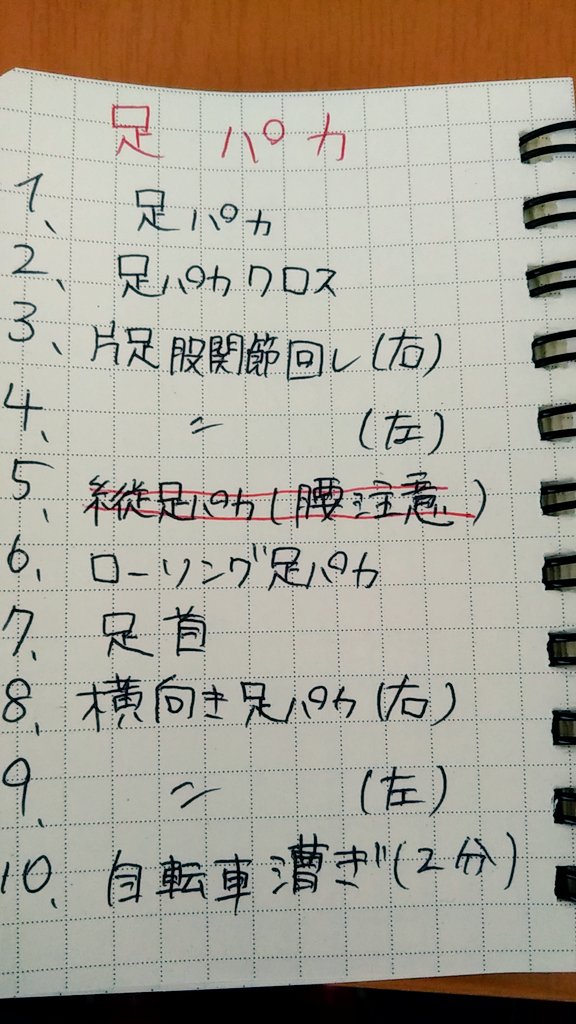 足パカ
1、足パカ
2、足パカクロス
3、片足股関節回し(右)
4、〃(左)
5、縦足パカ(腰注意)
6、ローリング足パカ
7、足首
8、横向き足パカ(右)
9、〃(左)
10、自転車漕ぎ(2分)